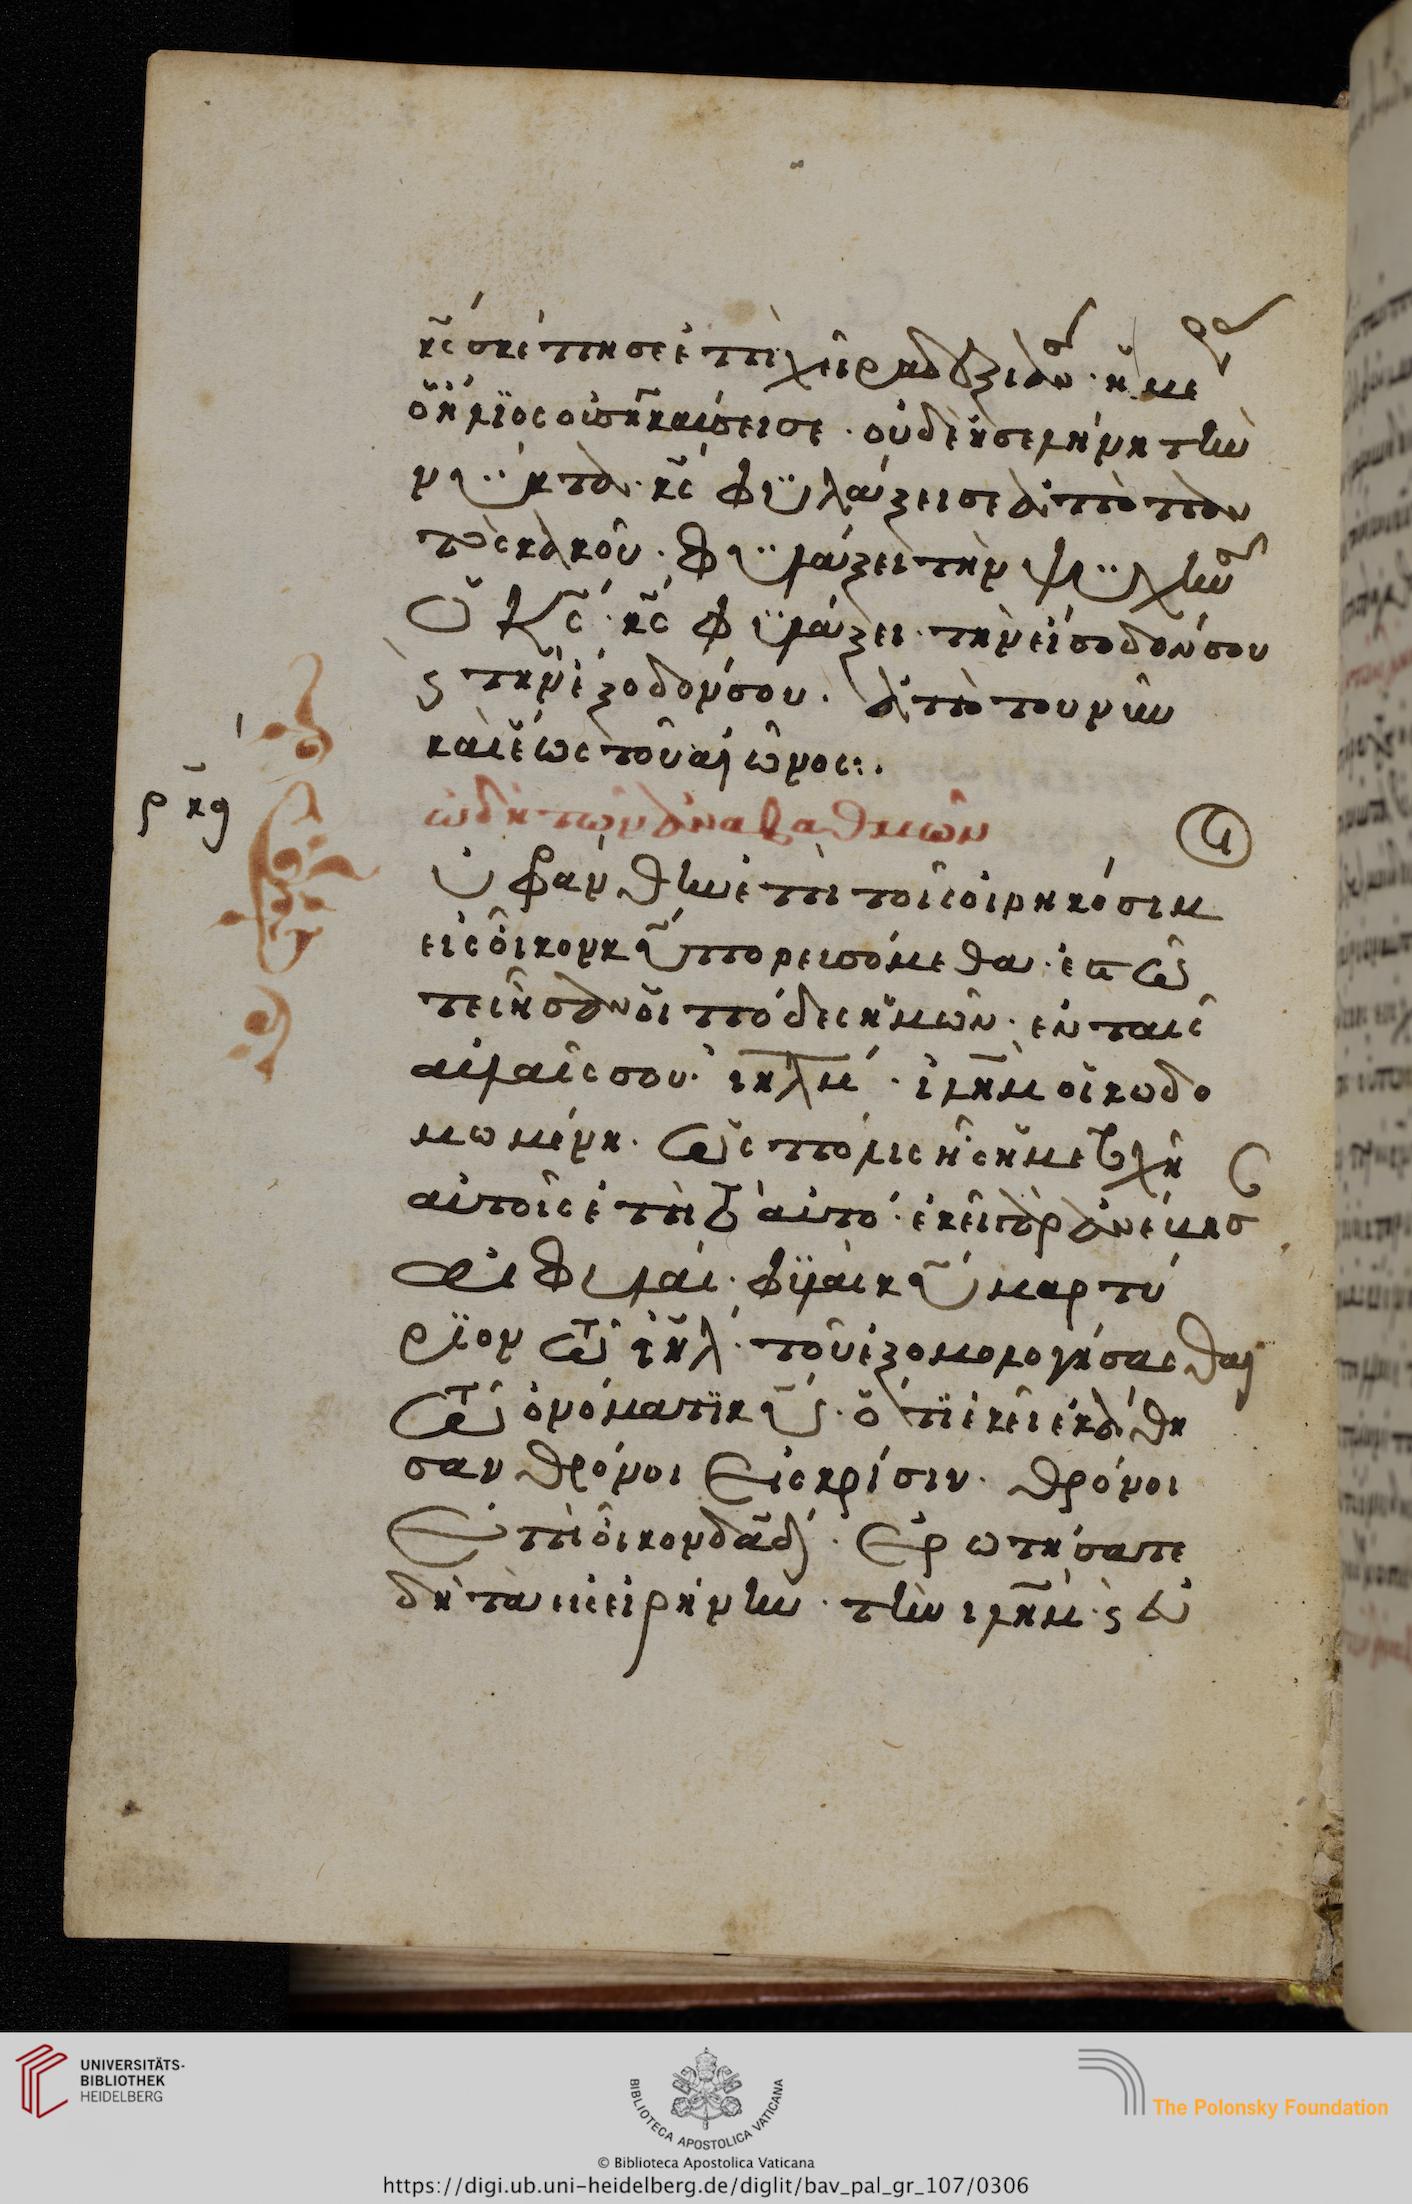 κς̃ σκέπη σε ἐπὶ χεῖρα δεξιάν σου· ἡμέρας
ὁ ἥλϊος οὐ συγκαύσει σε· οὐδὲ ἡ σελήνη τὴν
νϋκτα· κς̃ φϋλάξει σε ἀπὸ παν
τὸς κακοῦ· φϋλάξει τὴν ψϋχήν σου
ὁ κς̃· κς̃ φϋλάξει τὴν εἴσοδόν σου
ϛ τὴν ἔξοδόν σου· ἀπὸ του νῦν
καὶ ἕως τοῦ αἰῶνος:·
ρκα
ὠδὴ τῶν ἀναβαθμῶν
Ὀφράνθην ἐπὶ τοῖς εἰρηκόσιμ
εἰς οἶκον κῦ πορευσόμεθα· ἑστῶ
τες ἦσαν οἱ πόδες ἡμῶν· ἐν ταις
αὐλαῖς σου ιηλμ· ιλημ οἰκωδο
μωμένη· ὡς πόλις ἧς ἡ μετοχὴ
αὐτοῖς ἐπὶ τὸ αὐτό· ἐκεῖ γὰρ ἀνέβησ
αι φυλαί· φϋλαὶ κῦ μαρτύ
ρϊον τῷ ιηλ· τοῦ ἐξομολογήσασθαι
τῷ ὀνόματϊ κῦ· ὅτϊ ἐκεῖ ἐκάθη
σαν θρόνοι εἰς κρίσιν· θρόνοι
ἐπὶ οἶκον δαδ· ἐρωτήσατε
δὴ τὰ εἰς εἰρήνην· τὴν ιλημ· ϛ εὐ
UNIVERSITÄTS-
BIBLIOTHEK
HEIDELBERG
BIBLIOTECA APOSTOLICA VATICANA
The Polonsky Foundation
© Biblioteca Apostolica Vaticana
https://digi.ub.uni-heidelberg.de/diglit/bav_pal_gr_107/0306